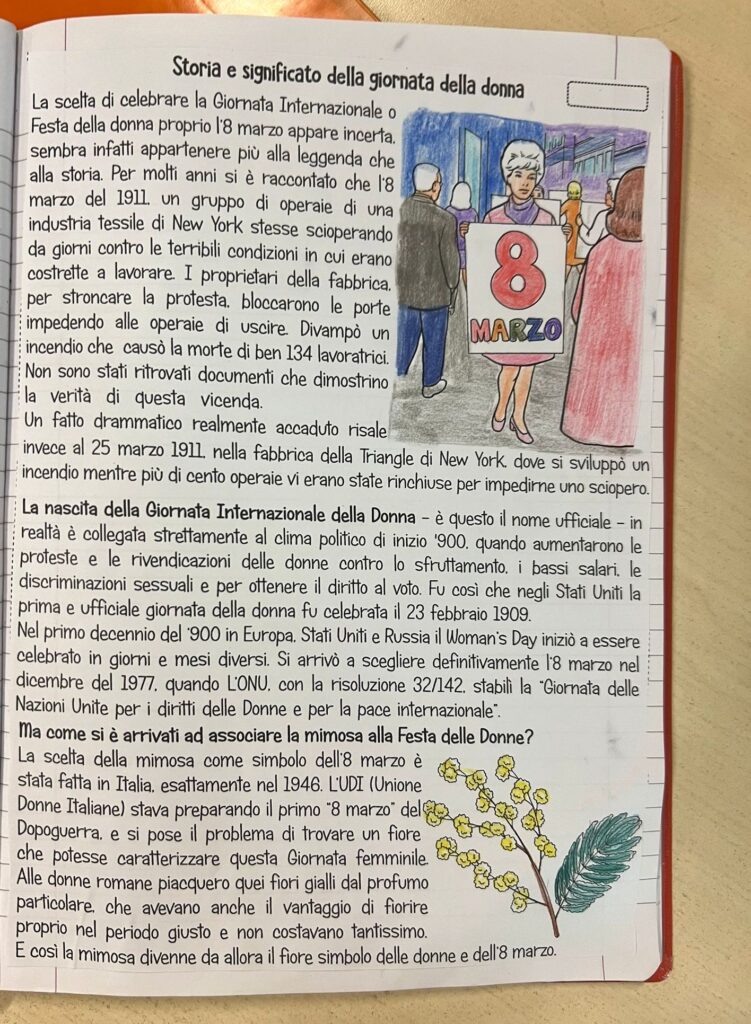 Storia e significato della giornata della donna
La scelta di celebrare la Giornata Internazionale o
Festa della donna proprio l'8 marzo appare incerta,
sembra infatti appartenere più alla leggenda che
alla storia. Per molti anni si è raccontato che l'8
marzo del 1911, un gruppo di operaie di una
industria tessile di New York stesse scioperando
da giorni contro le terribili condizioni in cui erano
costrette a lavorare. I proprietari della fabbrica,
per stroncare la protesta, bloccarono le porte
impedendo alle operaie di uscire. Divampò un
incendio che causò la morte di ben 134 lavoratrici.
Non sono stati ritrovati documenti che dimostrino
la verità di questa vicenda.
Un fatto drammatico realmente accaduto risale
invece al 25 marzo 1911, nella fabbrica della Triangle di New York, dove si sviluppò un
incendio mentre più di cento operaie vi erano state rinchiuse per impedirne uno sciopero.
8
MARZO
La nascita della Giornata Internazionale della Donna – è questo il nome ufficiale – in
realtà è collegata strettamente al clima politico di inizio '900, quando aumentarono le
proteste e le rivendicazioni delle donne contro lo sfruttamento, i bassi salari, le
discriminazioni sessuali e per ottenere il diritto al voto. Fu così che negli Stati Uniti la
prima e ufficiale giornata della donna fu celebrata il 23 febbraio 1909.
Nel primo decennio del '900 in Europa, Stati Uniti e Russia il Woman's Day iniziò a essere
celebrato in giorni e mesi diversi. Si arrivò a scegliere definitivamente l'8 marzo nel
dicembre del 1977, quando L'ONU, con la risoluzione 32/142, stabilì la "Giornata delle
Nazioni Unite per i diritti delle Donne e per la pace internazionale".
Ma come si è arrivati ad associare la mimosa alla Festa delle Donne?
La scelta della mimosa come simbolo dell'8 marzo è
stata fatta in Italia, esattamente nel 1946. L'UDI (Unione
Donne Italiane) stava preparando il primo "8 marzo" del
Dopoguerra, e si pose il problema di trovare un fiore
che potesse caratterizzare questa Giornata femminile.
Alle donne romane piacquero quei fiori gialli dal profumo
particolare, che avevano anche il vantaggio di fiorire
proprio nel periodo giusto e non costavano tantissimo.
E così la mimosa divenne da allora il fiore simbolo delle donne e dell'8 marzo.